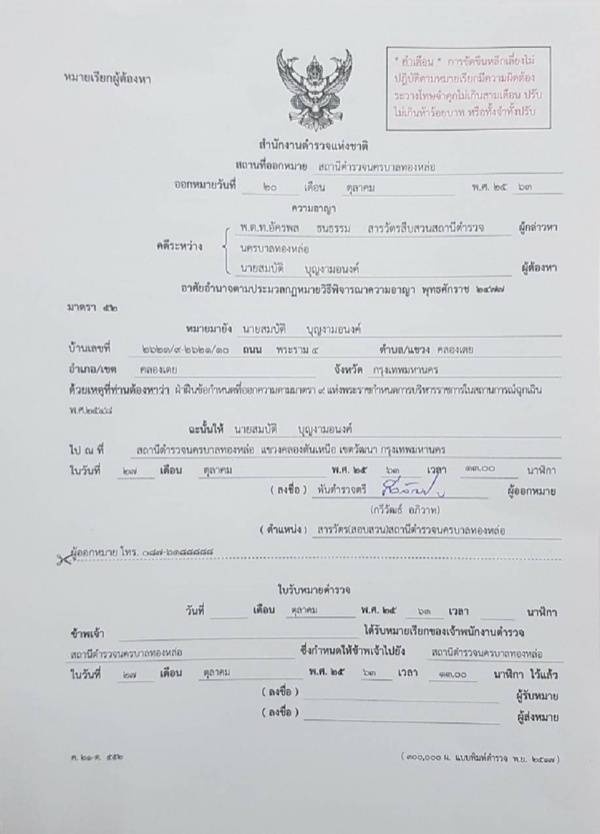 หมายเรียกผู้ต้องหา
* คำเตือน * การขัดขืนหลีกเลี่ยงไม่
ปฏิบัติตามหมายเรียกมีความผิดต้อง
ระวางโทษจำคุกไม่เกินสามเดือน ปรับ
ไม่เกินห้าร้อยบาท หรือทั้งจำทั้งปรับ
สำนักงานตำรวจแห่งชาติ
สถานที่ออกหมาย สถานีตำรวจนครบาลทองหล่อ
ออกหมายวันที่ ๒๐ เดือน ตุลาคม พ.ศ. ๒๕ ๖๓
ความอาญา
พ.ต.ท.อัครพล ธนธรรม สารวัตรสืบสวนสถานีตำรวจ ผู้กล่าวหา
คดีระหว่าง นครบาลทองหล่อ
นายสมบัติ บุญงามอนงค์ ผู้ต้องหา
อาศัยอำนาจตามประมวลกฎหมายวิธีพิจารณาความอาญา พุทธศักราช ๒๔๗๗
มาตรา ๕๒
หมายมายัง นายสมบัติ บุญงามอนงค์
บ้านเลขที่ ๒๖๒๑/๙-๒๖๒๑/๑๐ ถนน พระราม ๔ ตำบล/แขวง คลองเตย
อำเภอ/เขต คลองเตย จังหวัด กรุงเทพมหานคร
ด้วยเหตุที่ท่านต้องหาว่า ฝ่าฝืนข้อกำหนดที่ออกความตามมาตรา ๙ แห่งพระราชกำหนดการบริหารราชการในสถานการณ์ฉุกเฉิน
พ.ศ.๒๕๔๘
ฉะนั้นให้ นายสมบัติ บุญงามอนงค์
ไป ณ ที่ สถานีตำรวจนครบาลทองหล่อ แขวงคลองตันเหนือ เขตวัฒนา กรุงเทพมหานคร
ในวันที่ ๒๗ เดือน ตุลาคม พ.ศ. ๒๕ ๖๓ เวลา ๑๓.๐๐ นาฬิกา
(ลงชื่อ) พันตำรวจตรี ผู้ออกหมาย
(กวีวัฒน์ อภิวาท)
(ตำแหน่ง) สารวัตร(สอบสวน)สถานีตำรวจนครบาลทองหล่อ
ผู้ออกหมาย โทร. ๐๘๗-๖๑๘๘๘๘๘
ใบรับหมายตำรวจ
วันที่ เดือน ตุลาคม พ.ศ. ๒๕ ๖๓ เวลา นาฬิกา
ข้าพเจ้า ได้รับหมายเรียกของเจ้าพนักงานตำรวจ
สถานีตำรวจนครบาลทองหล่อ ซึ่งกำหนดให้ข้าพเจ้าไปยัง สถานีตำรวจนครบาลทองหล่อ
ในวันที่ ๒๗ เดือน ตุลาคม พ.ศ. ๒๕ ๖๓ เวลา ๑๓.๐๐ นาฬิกา ไว้แล้ว
(ลงชื่อ) ผู้รับหมาย
(ลงชื่อ) ผู้ส่งหมาย
ต. ๒๑-ต. ๕๕๒ (๓๐๐,๐๐๐ ผ. แบบพิมพ์ตำรวจ พ.ย. ๒๕๑๗)